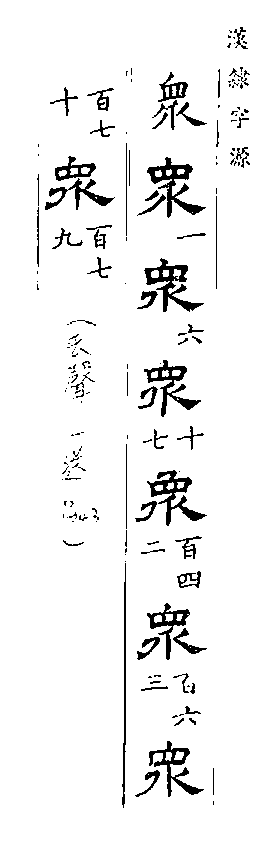 漢隸字源
衆衆一衆六衆十七衆百四二衆百六三衆
百七十衆百七九（去聲 一送